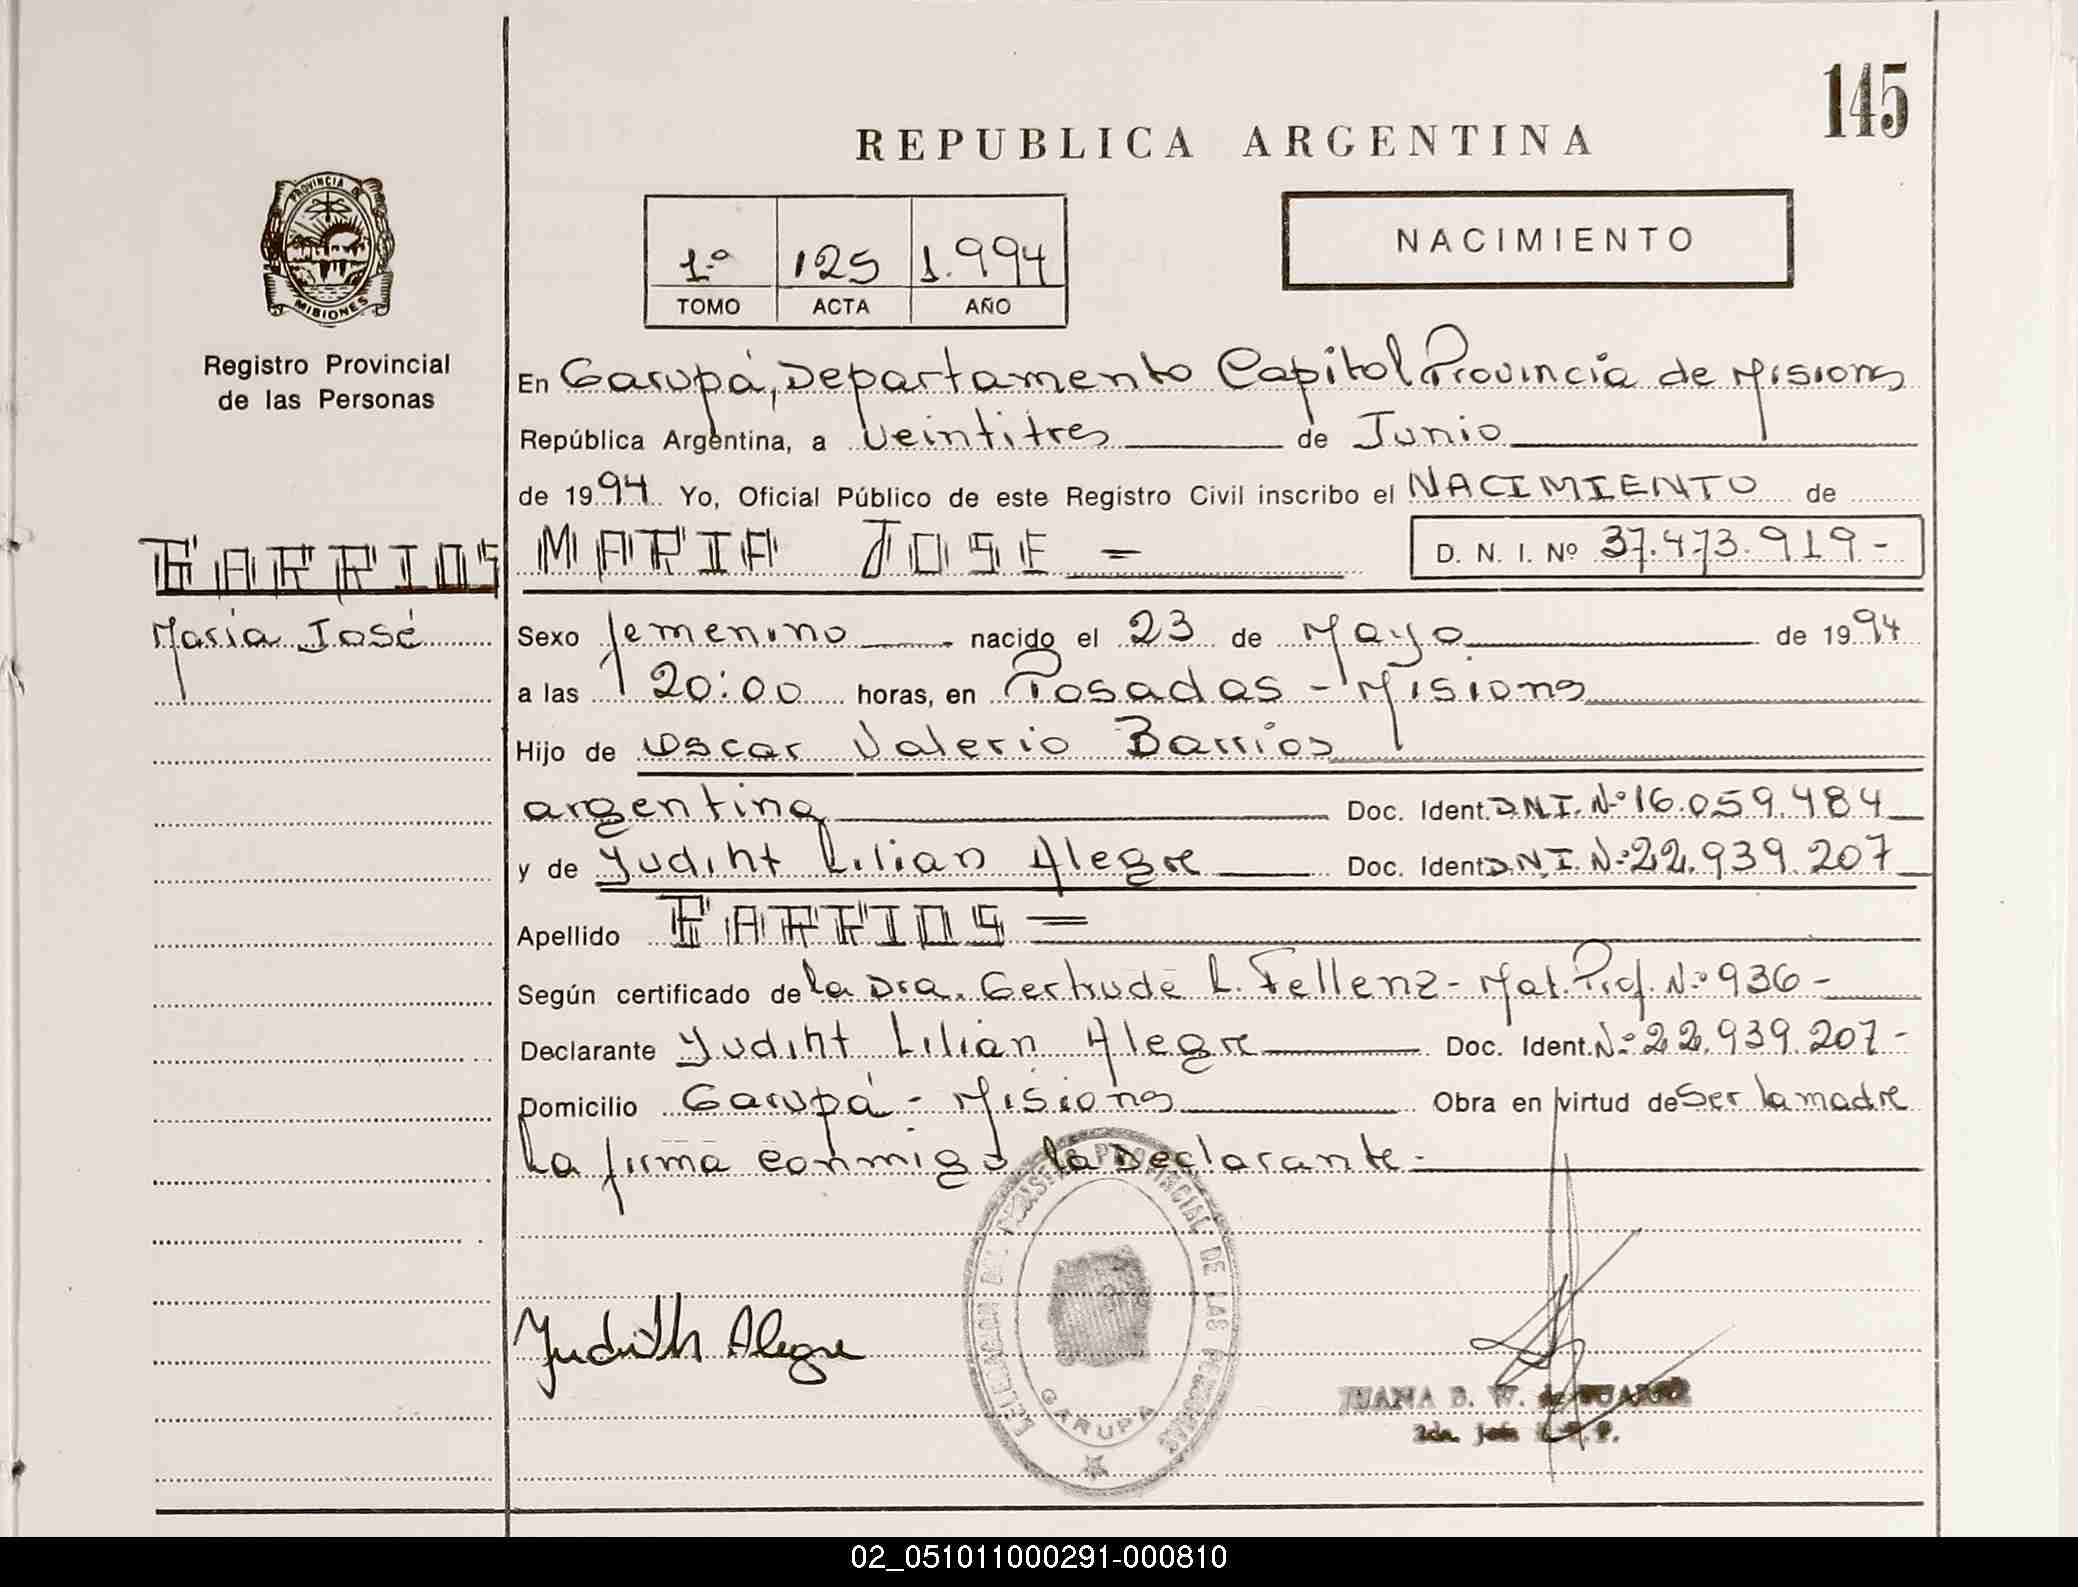 145
REPUBLICA ARGENTINA
PROVINCIA DE
MISIONES
Registro Provincial
de las Personas
1º 125 1.994
TOMO ACTA AÑO
NACIMIENTO
En Garupá, Departamento Capital Provincia de Misiones
República Argentina, a veintitres de Junio
de 1994 Yo, Oficial Público de este Registro Civil inscribo el NACIMIENTO de
BARRIOS MARIA JOSE =
D. N. I. Nº 37.473.919-
María José
Sexo femenino nacido el 23 de Mayo de 1994
a las 20:00 horas, en Posadas - Misiones
Hijo de Oscar Valerio Barrios
argentina Doc. Ident. D.N.I. Nº 16.059.484
y de Yudiht Lilian Alegre Doc. Ident. D.N.I. Nº 22.939.207
Apellido BARRIOS =
Según certificado de la Dra. Gertrude L. Fellenz - Mat. Prof. Nº 936 -
Declarante Yudiht Lilian Alegre Doc. Ident. Nº 22.939.207 -
Domicilio Garupá - Misiones Obra en virtud de ser la madre
La firma conmigo la Declarante -
DELEGACION DEL REGISTRO PROVINCIAL DE LAS PERSONAS
GARUPA
Yudith Alegre
JUANA B. W. de
2da. Jefe
02_051011000291-000810